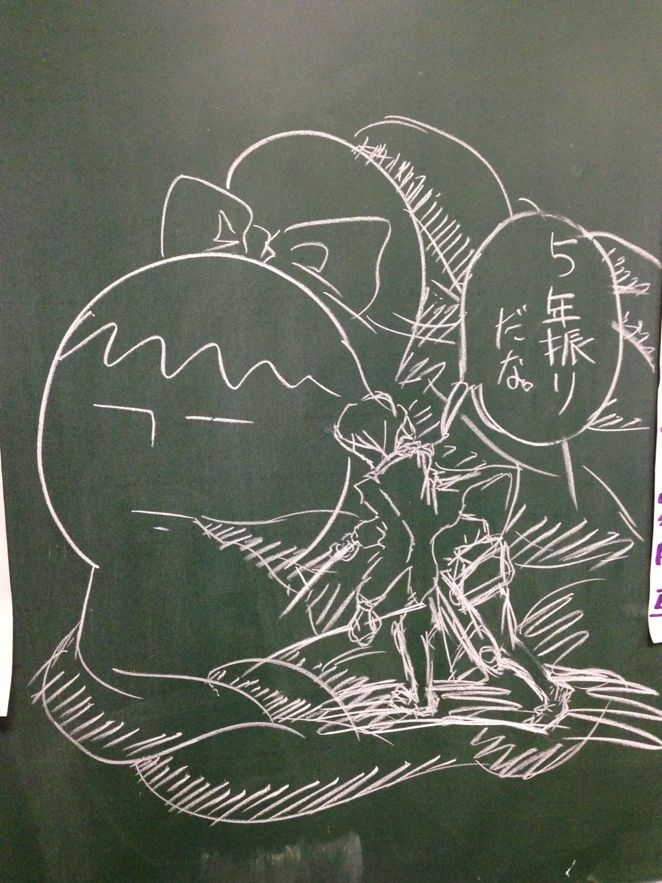 5年振り
だな。